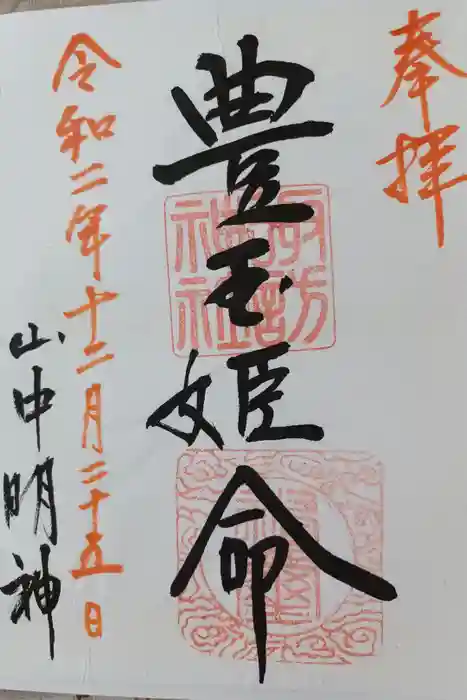 奉拝
豊玉姫命
令和二年十二月二十五日
山中明神